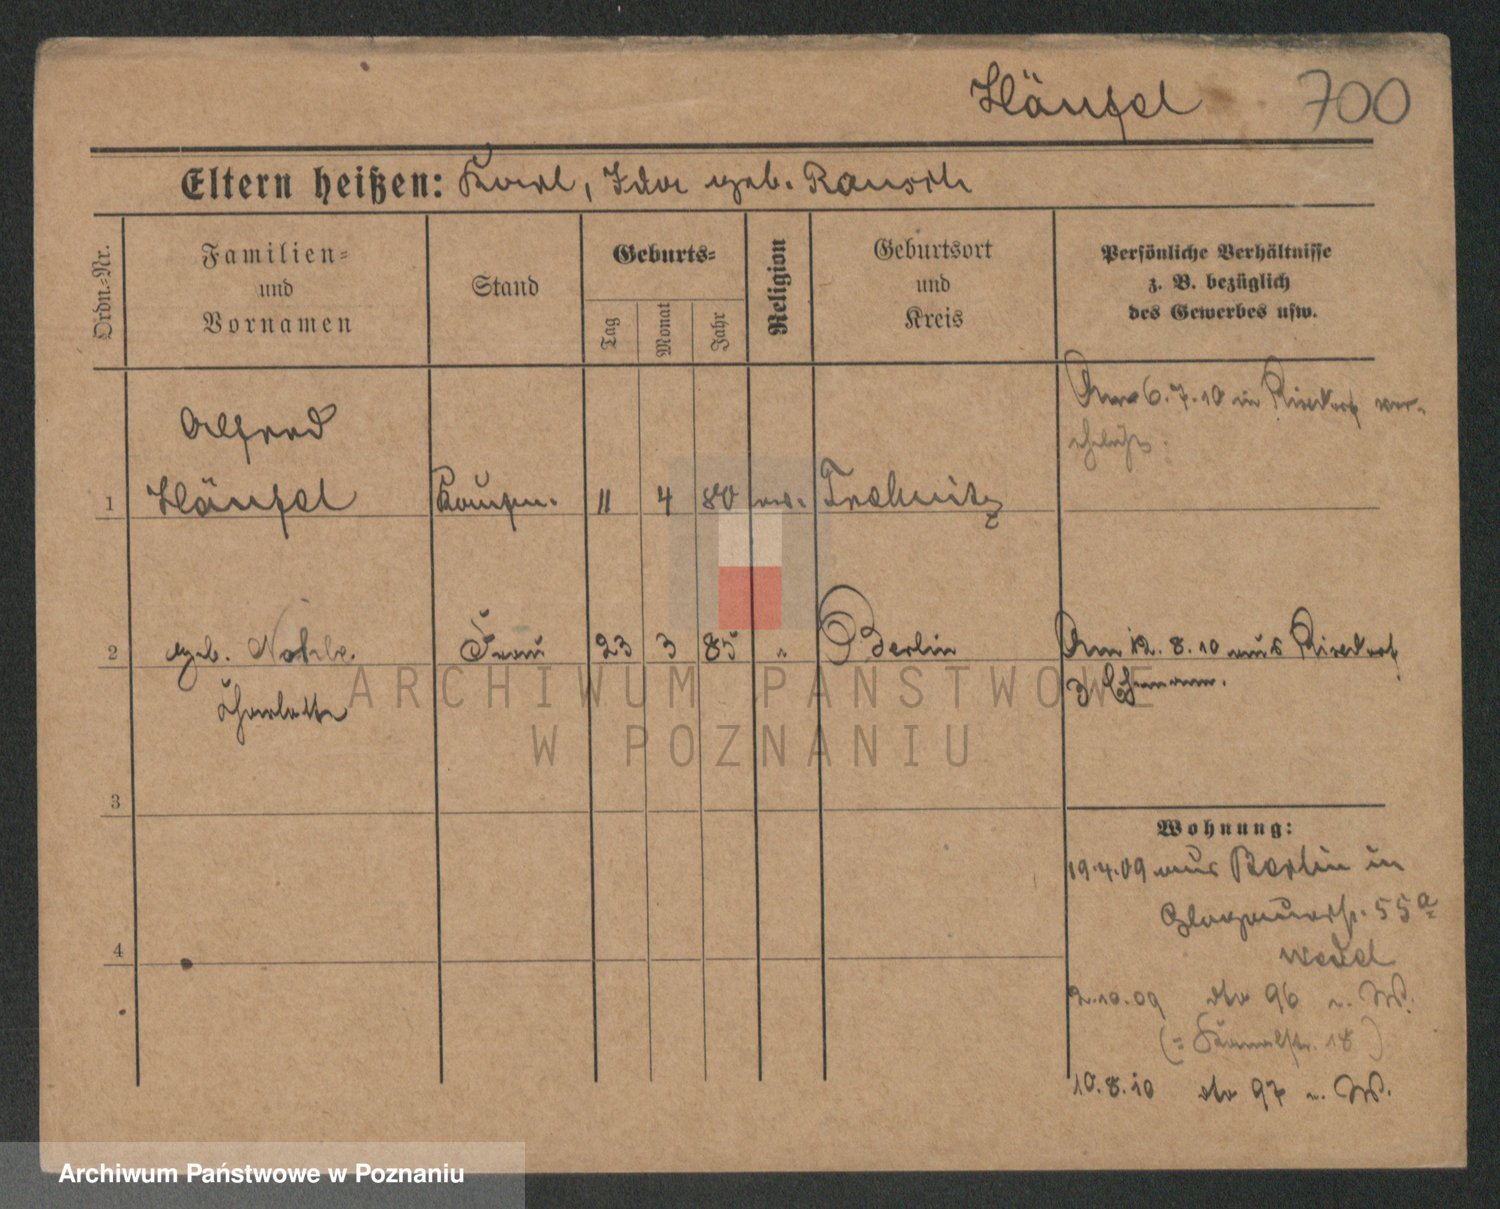 Hänsel 700
Eltern heißen: Karl, Ida geb. Rausch
Ordn.-Nr.
Familien-
und
Vornamen
Stand
Geburts-
Tag
Monat
Jahr
Religion
Geburtsort
und
Kreis
Persönliche Verhältnisse
z. B. bezüglich
des Gewerbes usw.
Am 6.7.10 in Rixdorf ver-
ehelicht.
Alfred
1 Hänsel Kaufm. 11 4 80 ev. Trebnitz
2 geb. Frau 23 3 85 " Berlin Am 12. 8. 10 aus Rixdorf
Charlotte z. Ehemann.
3
Wohnung:
19.4.09 aus Berlin in
Glogauerstr. 55a
4
2.10.09 dto 96 b. W.
(= Kanalstr. 18)
10.8.10 dto 97 b. W.
ARCHIWUM PAŃSTWOWE
W POZNANIU
Archiwum Państwowe w Poznaniu